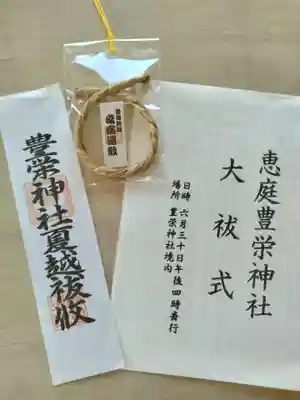 恵庭豊栄神社
大祓式
日時 六月三十日午後四時斎行
場所 豊栄神社境内
豊栄神社夏越祓攸